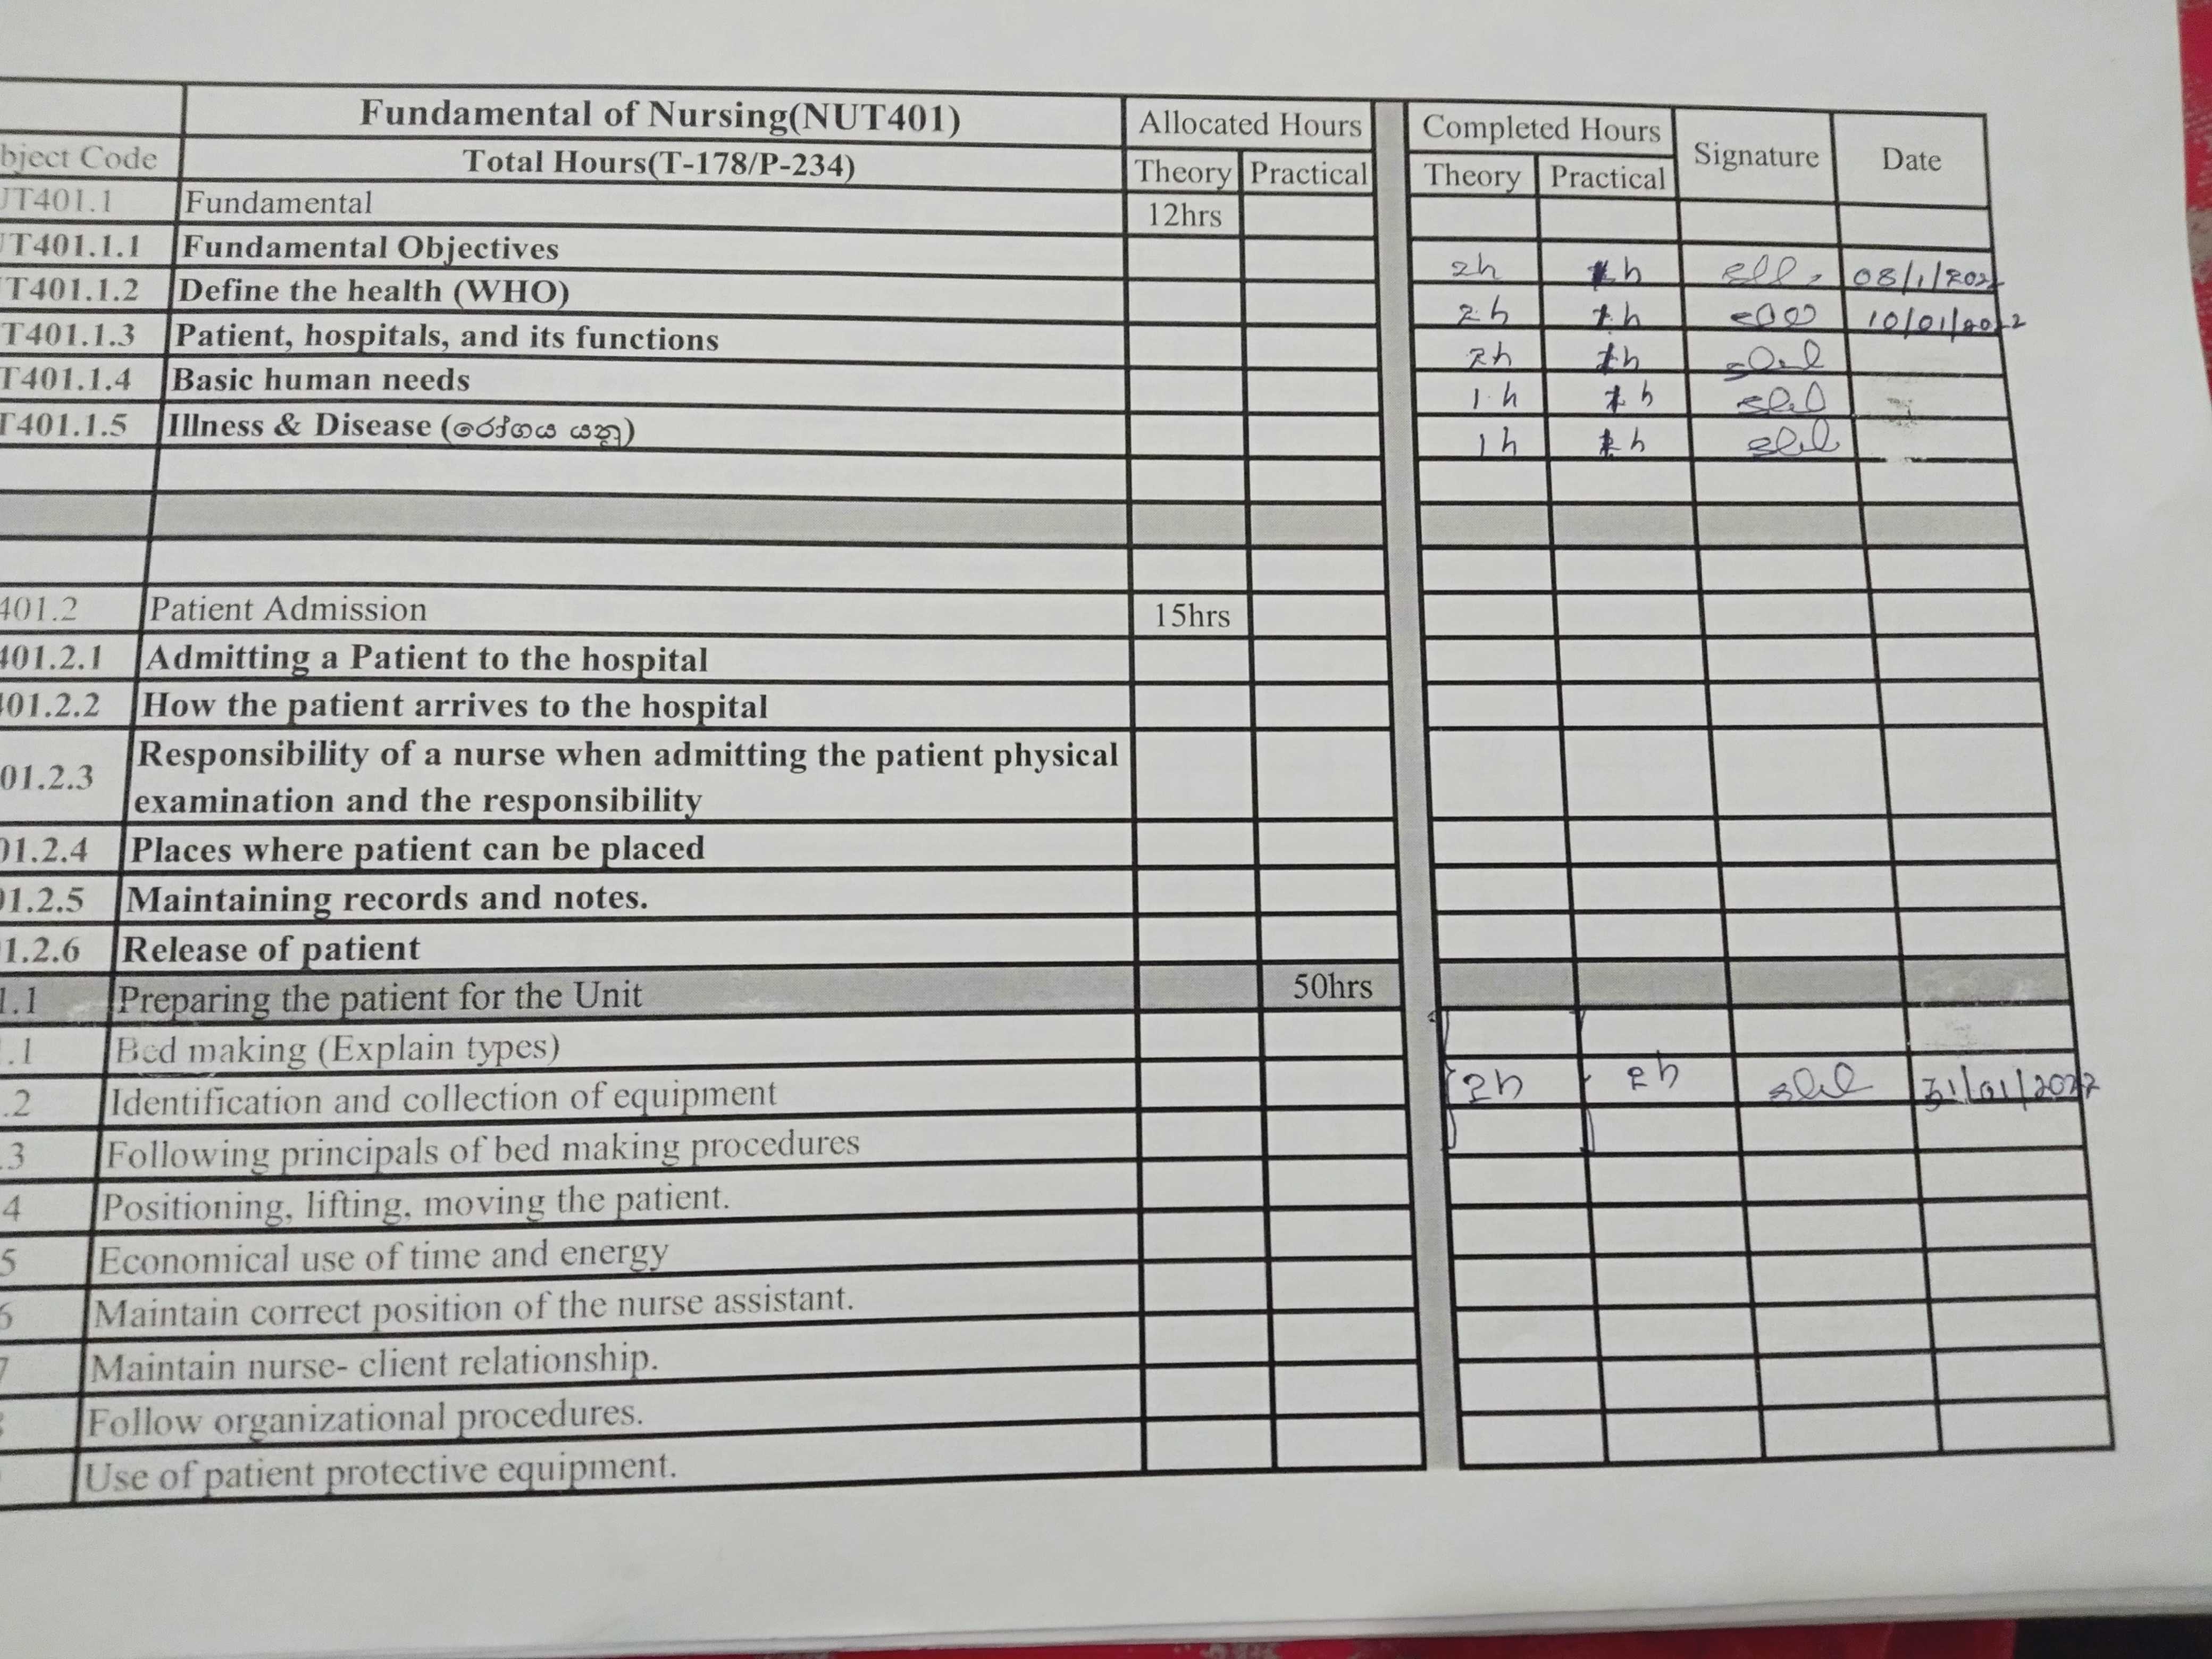 Fundamental of Nursing(NUT401) Allocated Hours Completed Hours Signature Date
bject Code Total Hours(T-178/P-234) Theory Practical Theory Practical
UT401.1 Fundamental 12hrs
UT401.1.1 Fundamental Objectives 2h h 08/1/202
T401.1.2 Define the health (WHO) 2h h 10/01/2022
T401.1.3 Patient, hospitals, and its functions 2h h
T401.1.4 Basic human needs 1h h
T401.1.5 Illness & Disease (රෝගය යනු) 1h h
401.2 Patient Admission 15hrs
401.2.1 Admitting a Patient to the hospital
401.2.2 How the patient arrives to the hospital
01.2.3 Responsibility of a nurse when admitting the patient physical
examination and the responsibility
01.2.4 Places where patient can be placed
01.2.5 Maintaining records and notes.
1.2.6 Release of patient
1.1 Preparing the patient for the Unit 50hrs
.1 Bed making (Explain types)
.2 Identification and collection of equipment 2h 2h 31/01/2022
.3 Following principals of bed making procedures
4 Positioning, lifting, moving the patient.
5 Economical use of time and energy
6 Maintain correct position of the nurse assistant.
7 Maintain nurse- client relationship.
Follow organizational procedures.
Use of patient protective equipment.